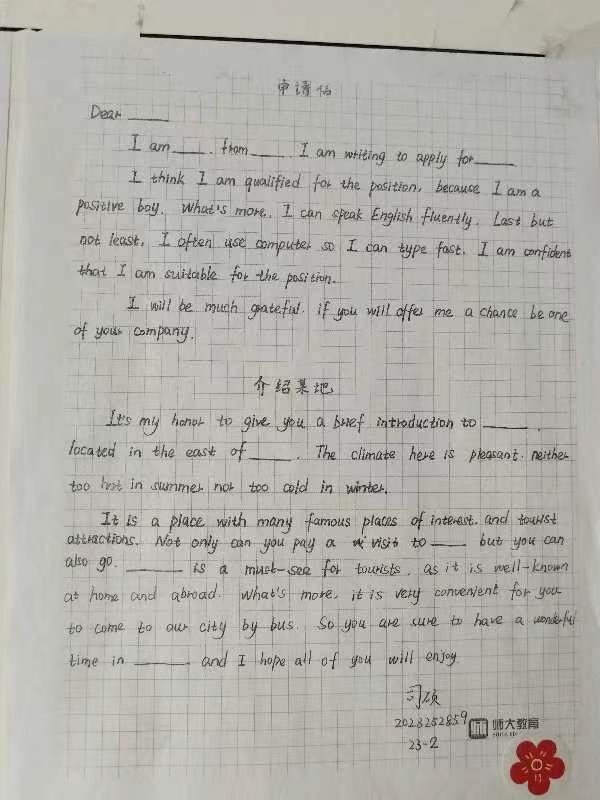 申请信
Dear ____
I am ____ . from ____ I am writing to apply for ____
I think I am qualified for the position, because I am a
positive boy. What's more, I can speak English fluently. Last but
not least, I often use computer so I can type fast. I am confident
that I am suitable for the position.
I will be much grateful. if you will offer me a chance be one
of your company.
介绍某地
It's my honor to give you a brief introduction to ____ ,
located in the east of ____ . The climate here is pleasant. neither
too hot in summer nor too cold in winter.
It is a place with many famous places of interest. and tourist
attractions. Not only can you pay a visit to ____ but you can
also go. ____ is a must-see for tourists, as it is well-known
at home and abroad. What's more, it is very convenient for you
to come to our city by bus. So you are sure to have a wonderful
time in ____ and I hope all of you will enjoy.
2023252859
23-2
师大教育
13